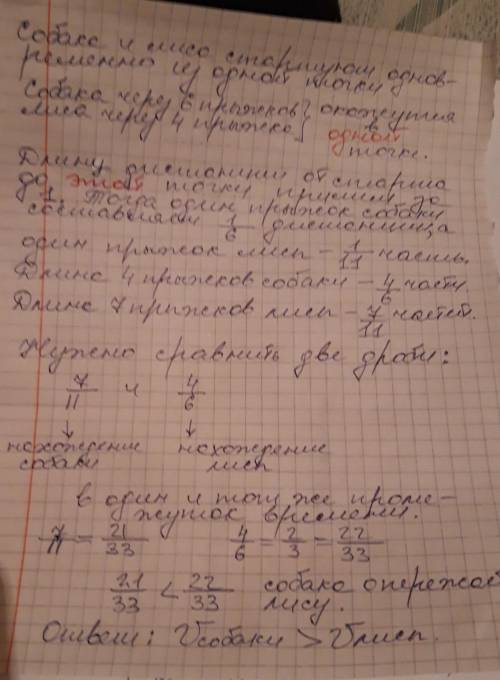 Собака и лиса стартуют однов-
ременно из одной точки
Собака через 6 прыжков } окажутся
лиса через 4 прыжка } в одной
точке.
Длину дистанции от старта
до этой точки примем за
1. Тогда один прыжок собаки
составляет 1/6 дистанции, а
один прыжок лисы – 1/11 часть.
Длина 4 прыжков собаки – 4/6 части.
Длина 7 прыжков лисы – 7/11 частей.
Нужно сравнить две дроби:
7/11 и 4/6
↓ ↓
нахождение собаки нахождение лисы
в один и тот же проме-
жуток времени.
7/11 = 21/33 4/6 = 2/3 = 22/33
21/33 < 22/33 собака опережает
лису.
Ответ: Vсобаки > Vлисы.